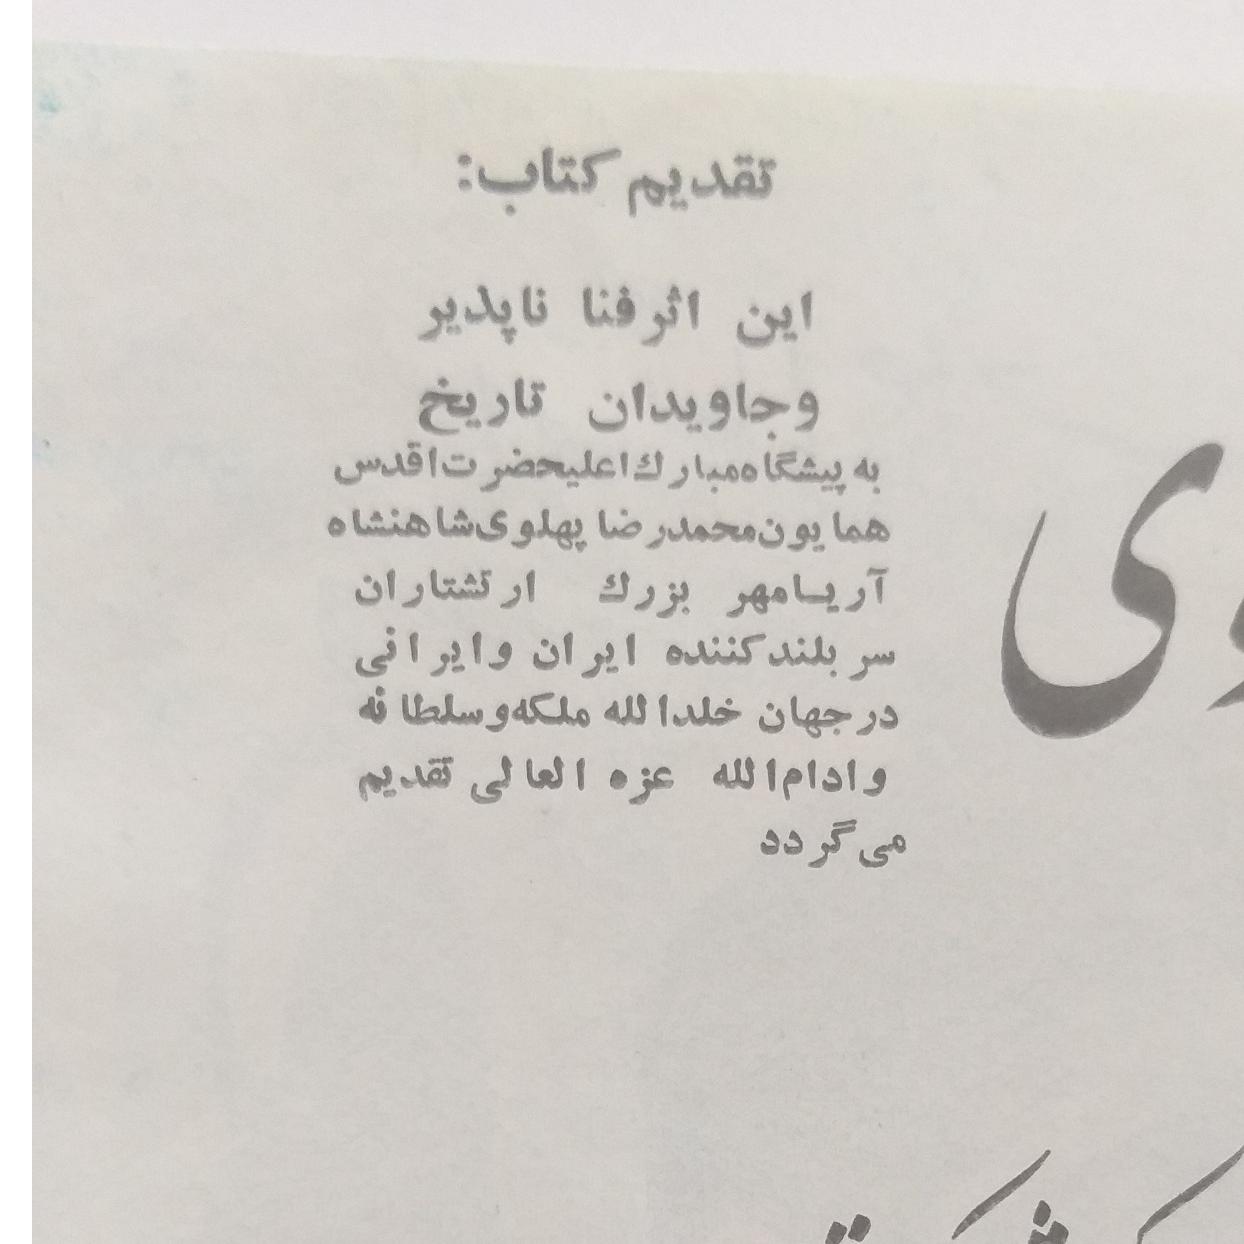 تقدیم کتاب:
این اثر فنا ناپذیر
و جاویدان تاریخ
به پیشگاه مبارك اعلیحضرت اقدس
همایون محمدرضا پهلوی شاهنشاه
آریامهر بزرك ارتشتاران
سربلند کننده ایران و ایرانی
در جهان خلدالله ملکه و سلطانه
و ادام الله عزه العالی تقدیم
می گردد